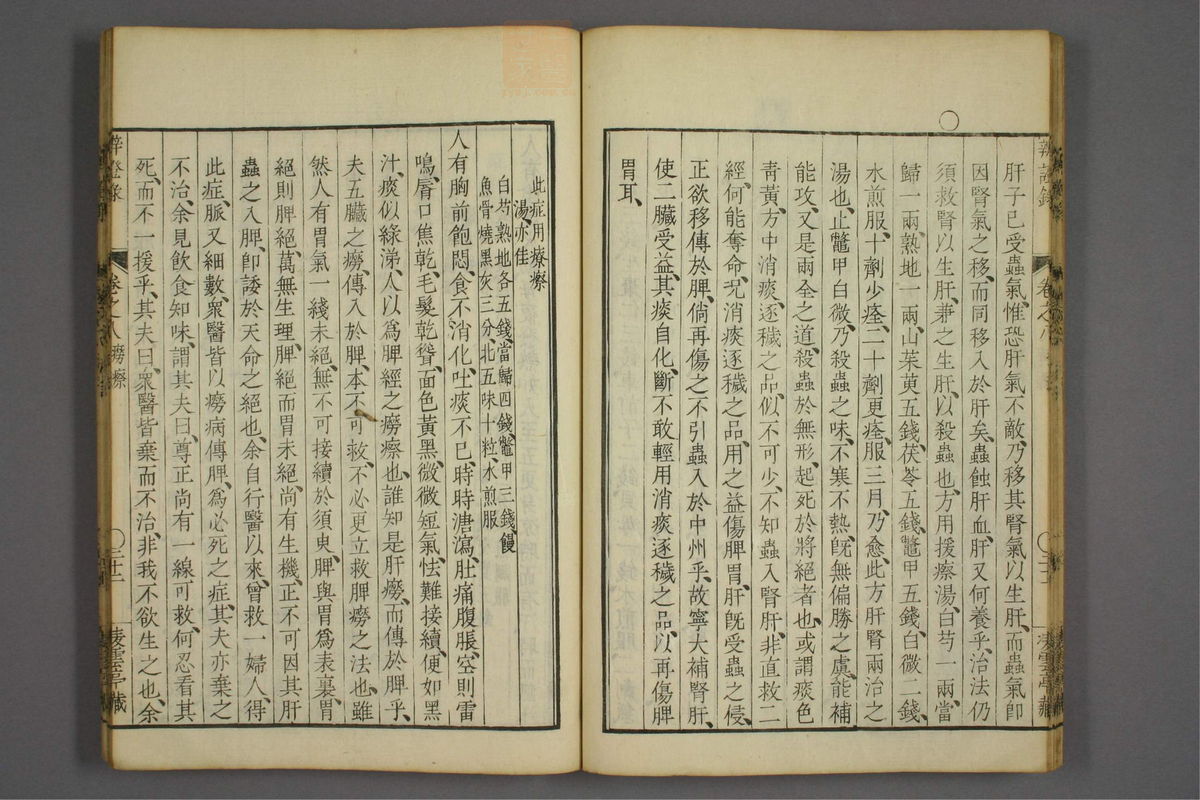 辨證錄
卷之八
肝子已受蟲氣、惟恐肝氣不敵、乃移其腎氣以生肝、而蟲氣卽
因腎氣之移、而同移入於肝矣、蟲蝕肝血、肝又何養乎、治法仍
須救腎以生肝、兼之生肝、以殺蟲也、方用援瘵湯、白芍一兩、當
歸一兩、熟地一兩、山茱萸五錢、茯苓五錢、鼈甲五錢、白微二錢、
水煎服、十劑少痊、二十劑更痊、服三月、乃愈、此方肝腎兩治之
湯也、止鼈甲白微、乃殺蟲之味、不寒不熱、旣無偏勝之虞、能補
能攻、又是兩全之道、殺蟲於無形、起死於將絕者也、或謂痰色
靑黃、方中消痰、逐穢之品、似不可少、不知蟲入腎肝、非直救二
經、何能奪命、况消痰逐穢之品、用之益傷脾胃、肝旣受蟲之侵、
正欲移傳於脾、倘再傷之、不引蟲入於中州乎、故寧大補腎肝、
使二臟受益、其痰自化、斷不敢輕用消痰逐穢之品、以再傷脾
胃耳、
此症用療瘵
湯、亦佳
白芍熟地各五錢、當歸四錢、鼈甲三錢、鰻
魚骨燒黑灰三分、北五味十粒、水煎服
人有胸前飽悶、食不消化、吐痰不已、時時溏瀉、肚痛腹脹、空則雷
鳴、脣口焦乾、毛髮乾聳、面色黃黑、微微短氣、怯難接續、便如黑
汁、痰似綠涕、人以爲脾經之癆瘵也、誰知是肝癆、而傳於脾乎、
夫五臟之癆、傳入於脾、本不可救、不必更立救脾癆之法也、雖
然人有胃氣一綫未絕、無不可接續於須臾、脾與胃爲表裏、胃
絕則脾絕、萬無生理、脾絕而胃未絕、尚有生機、正不可因其肝
蟲之入脾、卽諉於天命之絕也、余自行醫以來、曾救一婦人、得
此症、脈又細數、衆醫皆以癆病傳脾、爲必死之症、其夫亦棄之
不治、余見飲食知味、謂其夫曰、尊正尚有一線可救、何忍看其
死、而不一援乎、其夫曰、衆醫皆棄而不治、非我不欲生之也、余
辨證錄
卷之八癆瘵
三十二
凌雲亭藏